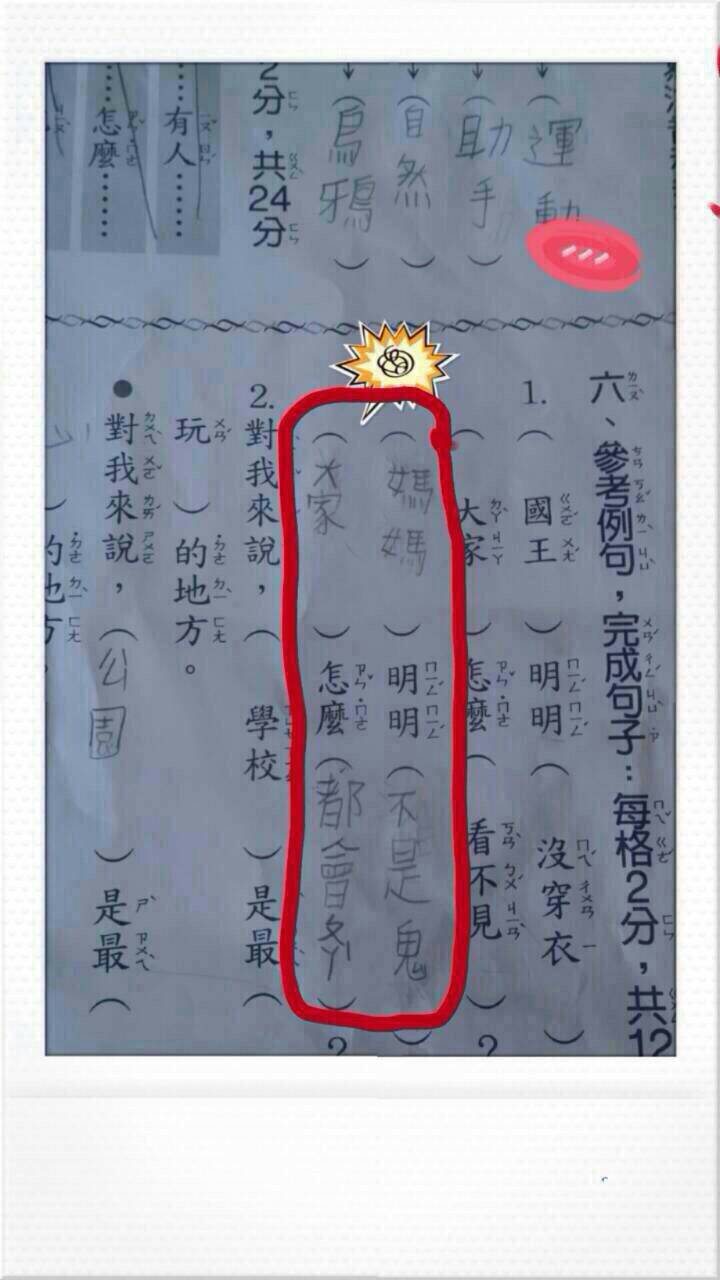 （運動
（助手）
（自然）
（烏鴉）
2分，共24分
……有人……
……怎麼……
六、參考例句，完成句子：每格2分，共12
1.（國王）明明（沒穿衣）
（大家）怎麼（看不見）？
（媽媽）明明（不是鬼）
（大家）怎麼（都會ㄆㄚˋ）？
2.對我來說，（學校）是最（
玩）的地方。
●對我來說，（公園）是最（
）的地方。